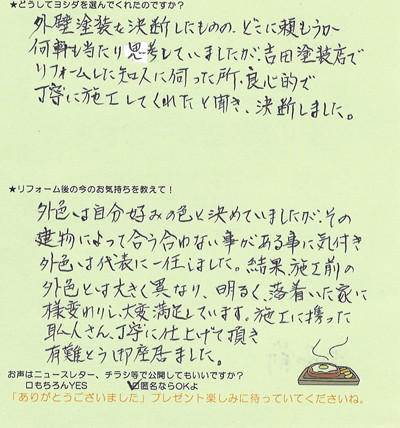 ★どうしてヨシダを選んでくれたのですか?
外壁塗装を決断したものの、どこに頼もうか
何軒も当たり思考していましたが、吉田塗装店で
リフォームした知人に伺った所、良心的で
丁寧に施工してくれたと聞き、決断しました。
★リフォーム後の今のお気持ちを教えて!
外色は自分好みの色と決めていましたが、その
建物によって合う合わない事がある事に気付き
外色は代表に一任しました。結果、施工前の
外色とは大きく異なり、明るく、落着いた家に
様変わりし、大変満足しています。施工に携った
職人さん、丁寧に仕上げて頂き
有難とう御座居ました。
お声はニュースレター、チラシ等で公開してもいいですか?
□もちろんYES ☑匿名ならOKよ
「ありがとうございました」プレゼント楽しみに待っていてくださいね。